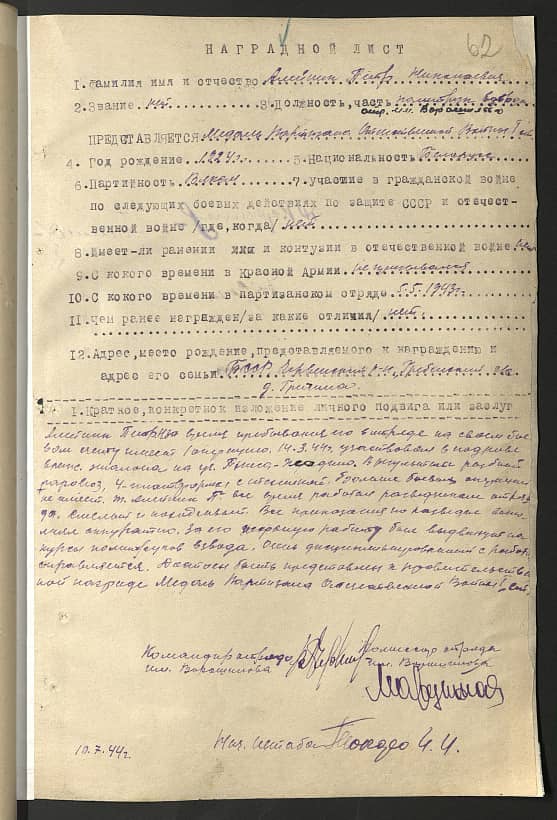 62
НАГРАДНОЙ ЛИСТ
1. Фамилия имя и отчество Алейник Петр Николаевич
2. Звание нет 3. Должность, часть политрук взвода
отр. им. Ворошилова
ПРЕДСТАВЛЯЕТСЯ Медаль Партизана Отечественной Войны I ст.
4. Год рождение 1924г. 5. Национальность Белорус
6. Партийность 7. участие в гражданской войне
по следующих боевых действиях по защите СССР и отечест-
венной войне /где, когда/ нет
8. Имеет-ли ранении и контузии в отечественной войне нет
9. С кокого времени в Красной Армии не служивал
10. С кокого времени в партизанском отряде 5.5.1943г.
11. Чем ранее награжден/за какие отличия/ нет
12. Адрес, место рождение, представляемого к награждению и
адрес его семьи БССР р-н, с/с
д.
1. Краткое, конкретнок изложение личного подвига или заслуг
Алейник Петр за время пребывания его в отряде на своем бое
вом счету имеет 1 операцию. 14.3.44г. участвовал в подрыве
вражс. эшалона на ул. В результати разбит
паровоз, 4 платформы с техникой. Больше боевых операций
не имеет. т. Алейник П. все время работал разведчиком отряд
да. Смелый и настойчивый. Все приказания по разведке выпо
лнял аккуратно. За его хорошую работу был выдвинут на
курсы политруков взвода. Очень дисциплинированный с работой
справляется. Достоен быть представлен к правительстве
ной награде Медаль Партизана Отечественной Войны I ст.
Командир отряда
им. Ворошилова
Комиссар отряда
им. Ворошилова
10.7.44г.
Нач. Штаба